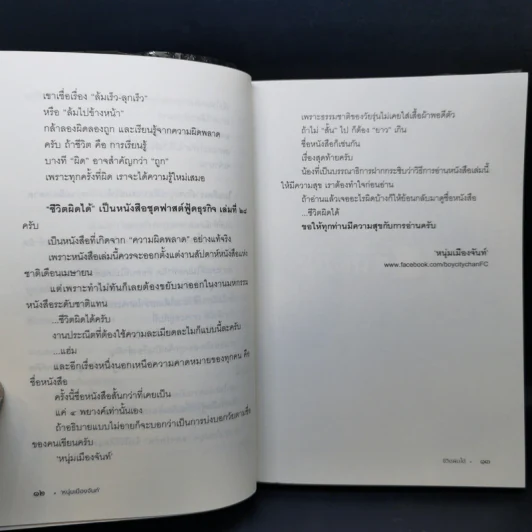 เขาเชื่อเรื่อง "ล้มเร็ว-ลุกเร็ว"
หรือ "ล้มไปข้างหน้า"
กล้าลองผิดลองถูก และเรียนรู้จากความผิดพลาด
ครับ ถ้าชีวิต คือ การเรียนรู้
บางที "ผิด" อาจสำคัญกว่า "ถูก"
เพราะทุกครั้งที่ผิด เราจะได้ความรู้ใหม่เสมอ
"ชีวิตผิดได้" เป็นหนังสือชุดฟาสต์ฟู้ดธุรกิจ เล่มที่ ๒๔
ครับ
เป็นหนังสือที่เกิดจาก "ความผิดพลาด" อย่างแท้จริง
เพราะหนังสือเล่มนี้ควรจะออกตั้งแต่งานสัปดาห์หนังสือแห่ง
ชาติเดือนเมษายน
แต่เพราะทำไม่ทันก็เลยต้องขยับมาออกในงานมหกรรม
หนังสือระดับชาติแทน
...ชีวิตผิดได้ครับ
งานประณีตที่ต้องใช้ความละเมียดละไมก็แบบนี้ละครับ
...แฮ่ม
และอีกเรื่องหนึ่งนอกเหนือความคาดหมายของทุกคน คือ
ชื่อหนังสือ
ครั้งนี้ชื่อหนังสือสั้นกว่าที่เคยเป็น
แค่ ๔ พยางค์เท่านั้นเอง
ถ้าอธิบายแบบไม่อายก็จะบอกว่าเป็นการบ่งบอกวัยตามชื่อ
ของคนเขียนครับ
'หนุ่มเมืองจันท์'
๑๒ • หนุ่มเมืองจันท์
เพราะธรรมชาติของวัยรุ่นไม่เคยใส่เสื้อผ้าพอดีตัว
ถ้าไม่ "สั้น" ไป ก็ต้อง "ยาว" เกิน
ชื่อหนังสือก็เช่นกัน
เรื่องสุดท้ายครับ
น้องที่เป็นบรรณาธิการฝากกระซิบว่าวิธีการอ่านหนังสือเล่มนี้
ให้มีความสุข เราต้องทำใจก่อนอ่าน
ถ้าอ่านแล้วเจออะไรผิดบ้างก็ให้ย้อนกลับมาดูชื่อหนังสือ
...ชีวิตผิดได้
ขอให้ทุกท่านมีความสุขกับการอ่านครับ
'หนุ่มเมืองจันท์'
www.facebook.com/boycitychanFC
ชีวิตผิดได้ • ๑๓